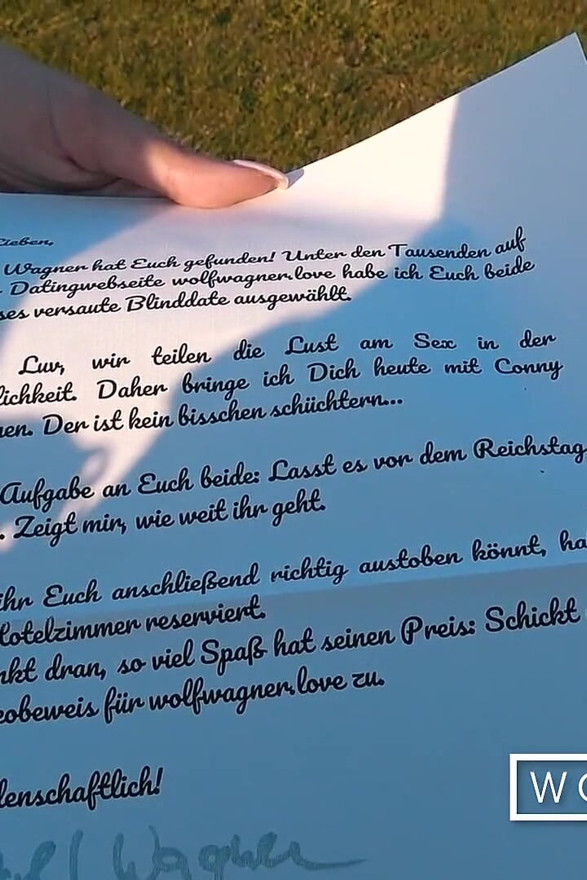 Lieben,
Wagner hat Euch gefunden! Unter den Tausenden auf
Datingwebseite wolfwagner.love habe ich Euch beide
ses versaute Blinddate ausgewählt.
Luv, wir teilen die Lust am Sex in der
lichkeit. Daher bringe ich Dich heute mit Conny
en. Der ist kein bisschen schüchtern...
Aufgabe an Euch beide: Lasst es vor dem Reichstag
. Zeigt mir, wie weit ihr geht.
ihr Euch anschließend richtig austoben könnt, ha
Hotelzimmer reserviert.
nkt dran, so viel Spaß hat seinen Preis: Schickt
eobeweis für wolfwagner.love zu.
denschaftlich!
Wagner
W